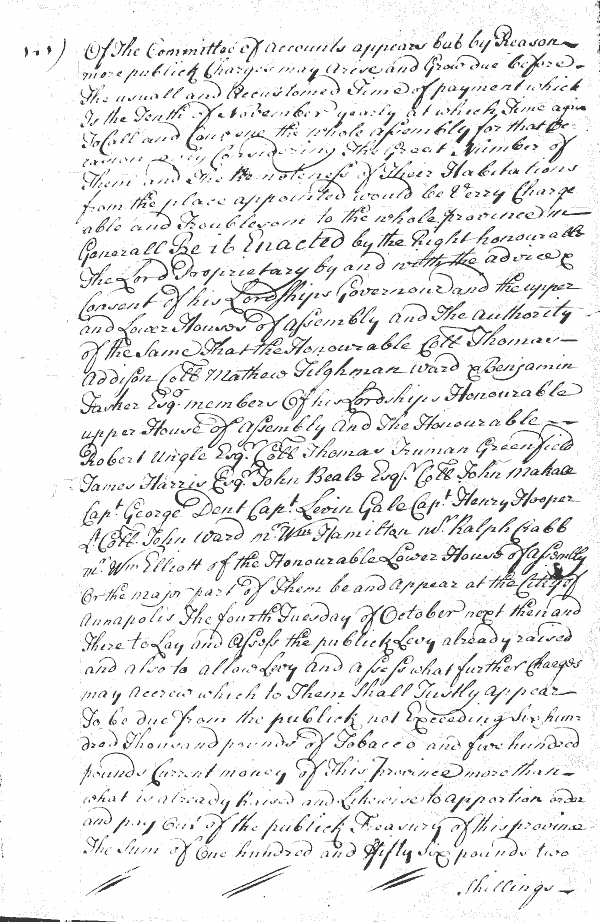 Of The Committee of accounts appears but by Reason
more publick Charges may Arise and Grow due before
The usuall and Accustomed Time of payment which
Is the Tenth of November yearly at which Time again
To Call and Convene the whole assembly for that
Considering The Great Number of
Them and The Remoteness of Their Habitations
from the place appointed would be Verry Charge
able and Troublesom to the whole province in
Generall Be it Enacted by the Right honourable
The Lord Proprietary by and with the advice &
Consent of his Lordships Governour and the upper
and Lower Houses of assembly and The Authority
of the Same That the Honourable Coll Thomas
Addison Coll Mathew Tilghman Ward & Benjamin
Tasker Esqr. members Of his Lordships Honourable
upper House of assembly and The Honourable
Robert Ungle Esqr. Coll Thomas Truman Greenfield
James Harris Esqr John Beale Esqr. Coll John Makall
Capt. George Dent Capt. Levin Gale Capt. Henry Hooper
Lt Coll John Ward mr. Wm. Hamilton mr. Ralph Crabb
mr. Wm Elliott of the Honourable Lower House of assembly
Or the major part of Them be and appear at the City of
Annapolis The fourth Tuesday of October next then and
There to Lay and assess the publick Levy already raised
and also to allow Levy and assess what further Charges
may accrew which to Them Shall Justly appear
To be due from the publick not Exceeding Six hun
dred Thousand pounds of Tobacco and five hundred
pounds Current money of This Province more than
what is already Raised and Likewise to apportion order
and pay Out of the publick Treasury of this province
The Sum of One hundred and fifty six pounds two
Shillings